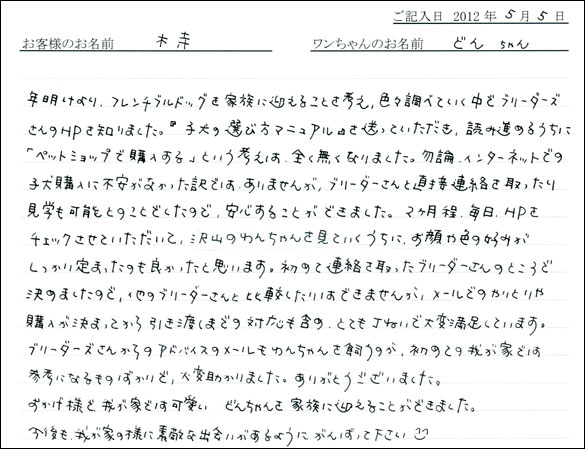 ご記入日 2012年 5月 5日
お客様のお名前 ワンちゃんのお名前 どん ちゃん
年明けより、フレンチブルドッグを家族に迎えることを考え、色々調べていく中でブリーダーズ
さんのHPを知りました。『子犬の選び方マニュアル』を送っていただき、読み進めるうちに
「ペットショップで購入する」という考えは、全く無くなりました。勿論、インターネットでの
子犬購入に不安がなかった訳では、ありませんが、ブリーダーさんと直接連絡を取ったり
見学も可能とのことでしたので、安心することができました。2ヶ月程、毎日、HPを
チェックさせていただいて、沢山のわんちゃんを見ていくうちに、お顔や色の好みが
しっかり定まったのも良かったと思います。初めて連絡を取ったブリーダーさんのところで
決めましたので、他のブリーダーさんと比較したりはできませんが、メールでのやりとりや
購入が決まってから引き渡しまでの対応も含め、とても丁ねいで大変満足しています。
ブリーダーズさんからのアドバイスのメールもわんちゃんを飼うのが、初めての我が家では
参考になるものばかりで、大変助かりました。ありがとうございました。
おかげ様で、我が家では可愛い どんちゃんを家族に迎えることができました。
今後も、我が家の様に素敵な出会いがあるようにがんばって下さい